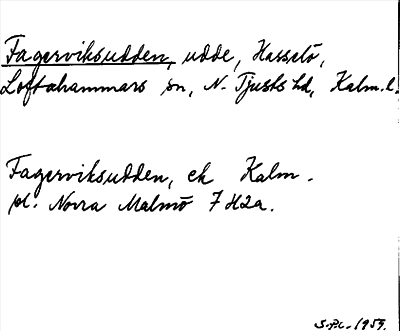 Fagerviksudden, udde, Hasselö,
Loftahammars sn, N. Tjusts hd, Kalm. l.
Fagerviksudden, ek Kalm.
pl. Norra Malmö 7H2a.
1959.